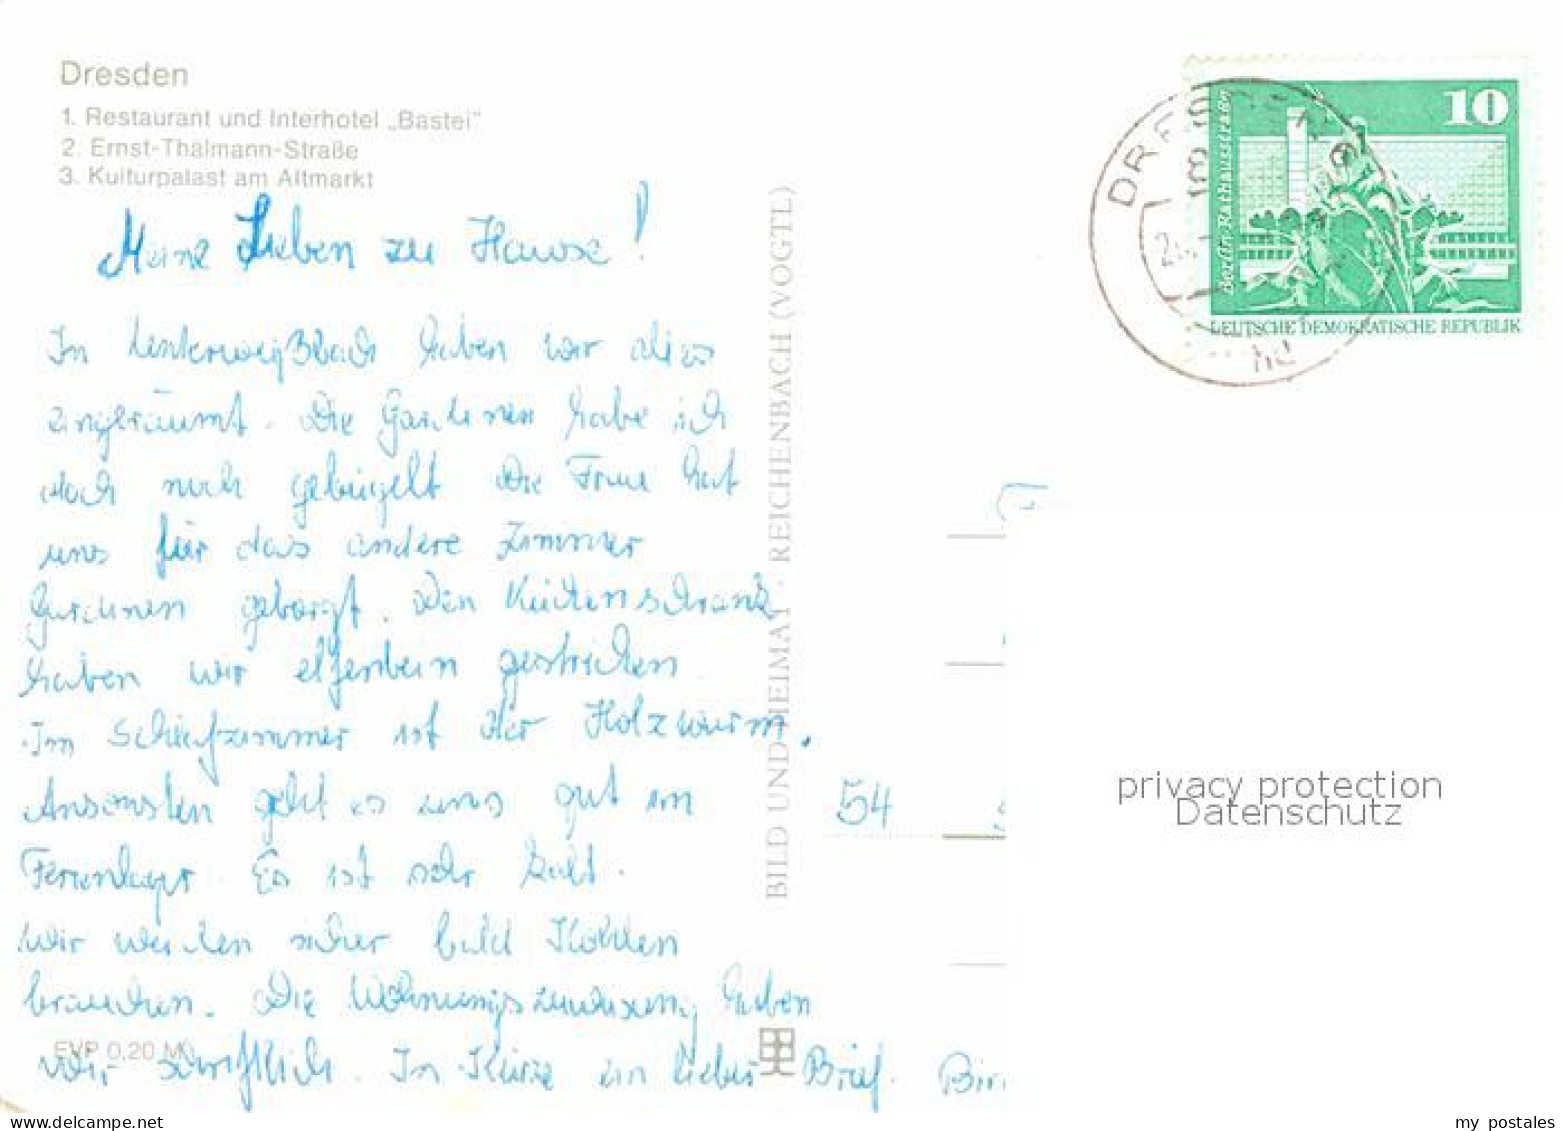 Dresden
1. Restaurant und Interhotel „Bastei"
2. Ernst-Thälmann-Straße
3. Kulturpalast am Altmarkt
Meine Lieben zu Hause!
In Unterweißbach haben wir alles
eingeräumt. Die Gardinen habe ich
doch noch gebügelt Die Frau hat
uns für das andere Zimmer
Gardinen geborgt. Den Küchenschrank
haben wir elfenbein gestrichen.
Im Schlafzimmer ist der Holzwurm.
Ansonsten geht es uns gut im
Ferienlager. Es ist sehr kalt.
Wir werden sicher bald Kohlen
brauchen. Die Wohnungszuweisung haben
wir schriftlich. In Kürze ein lieber Brief.
EVP 0,20 M
BILD UND HEIMAT REICHENBACH (VOGTL)
54
10
Berlin, Rathausstraße
DEUTSCHE DEMOKRATISCHE REPUBLIK
DRESDEN
privacy protection
Datenschutz
my postales